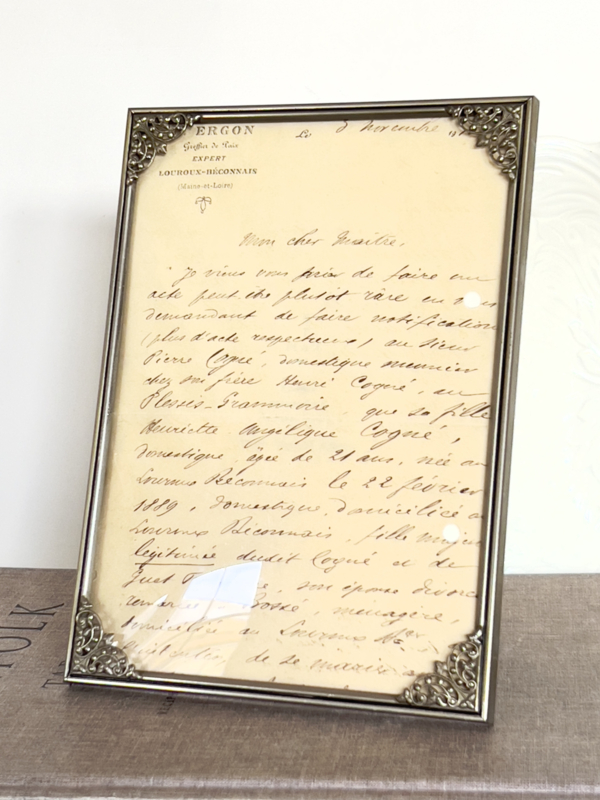 ERGON
Greffier de Paix
EXPERT
LOUROUX-BÉCONNAIS
(Maine-et-Loire)
Le 5 novembre
Mon cher Maître,
Je viens vous prier de faire un
acte peut être plutôt rare en vous
demandant de faire notification
(plus d'acte respectueux) au sieur
Pierre Cogné, domestique meunier
chez son frère Henri Cogné, au
Plessis-Grammoire que sa fille
Henriette Angélique Cogné,
domestique âgée de 21 ans, née au
Louroux Béconnais le 22 février
1889, domestique, domiciliée au
Louroux Béconnais, fille majeure
légitimée dudit Cogné et de
son épouse divorcée
Bossé, ménagère,
domiciliée au Louroux
de se marier
OLK